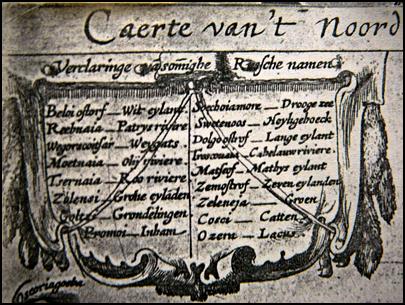 Caerte van't Noord
Verclaringe van somighe Rusche namen
Beloi ostorf — Wit eyland
Reebnaia — Patrys rivire
Wegorscoitsar — Weygats
Moetnaia — Oly riviere
Tsernaia — Roo riviere
Zelensi — Grohe eyladen
Goltes — Grondelingen
Promoi — Inham
Sochoiamore — Drooge zee
Swetenoos — Heyligehoeck
Dolgoostrof — Lange eylant
Cabelauw riviere
Matsof — Mathys eylant
Zemostrof — Zeven eylanden
Zeleneja — Groen
Cosci — Catten
Ozera — Lacus